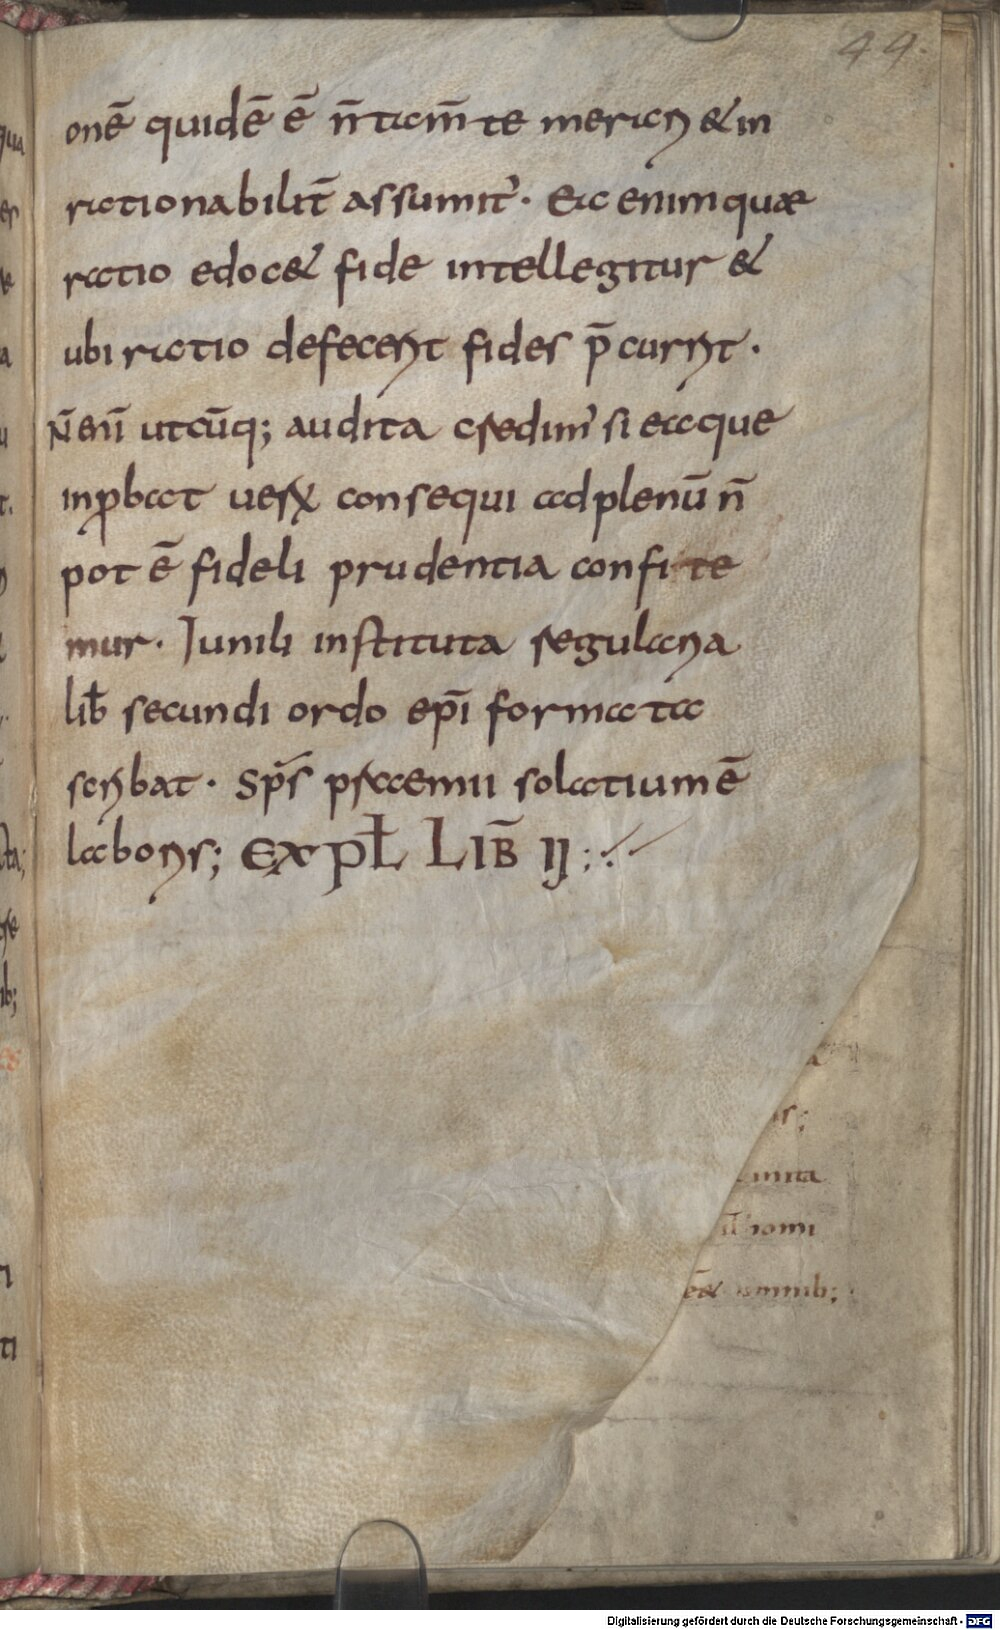 49.
onē quidē ē n̄ tam̄ te merari & in
rationabilit̄ assumit᾽. Ea enim quæ
ratio edoc& fide intellegitur &
ubi ratio defecerit fides p̄currit.
N̄ enī utcūq; audita credim᾽ si ea que
inꝓbat uerū consequi ad plenū n̄
pot ē fideli prudentia confite
mur. Junili instituta regularia
lib̄ secundi ordo ep̄i formata
scribat. Sp̄s praemii solatium ē
laboris; EXPL̄ LIB̄ II
Digitalisierung gefördert durch die Deutsche Forschungsgemeinschaft - DFG